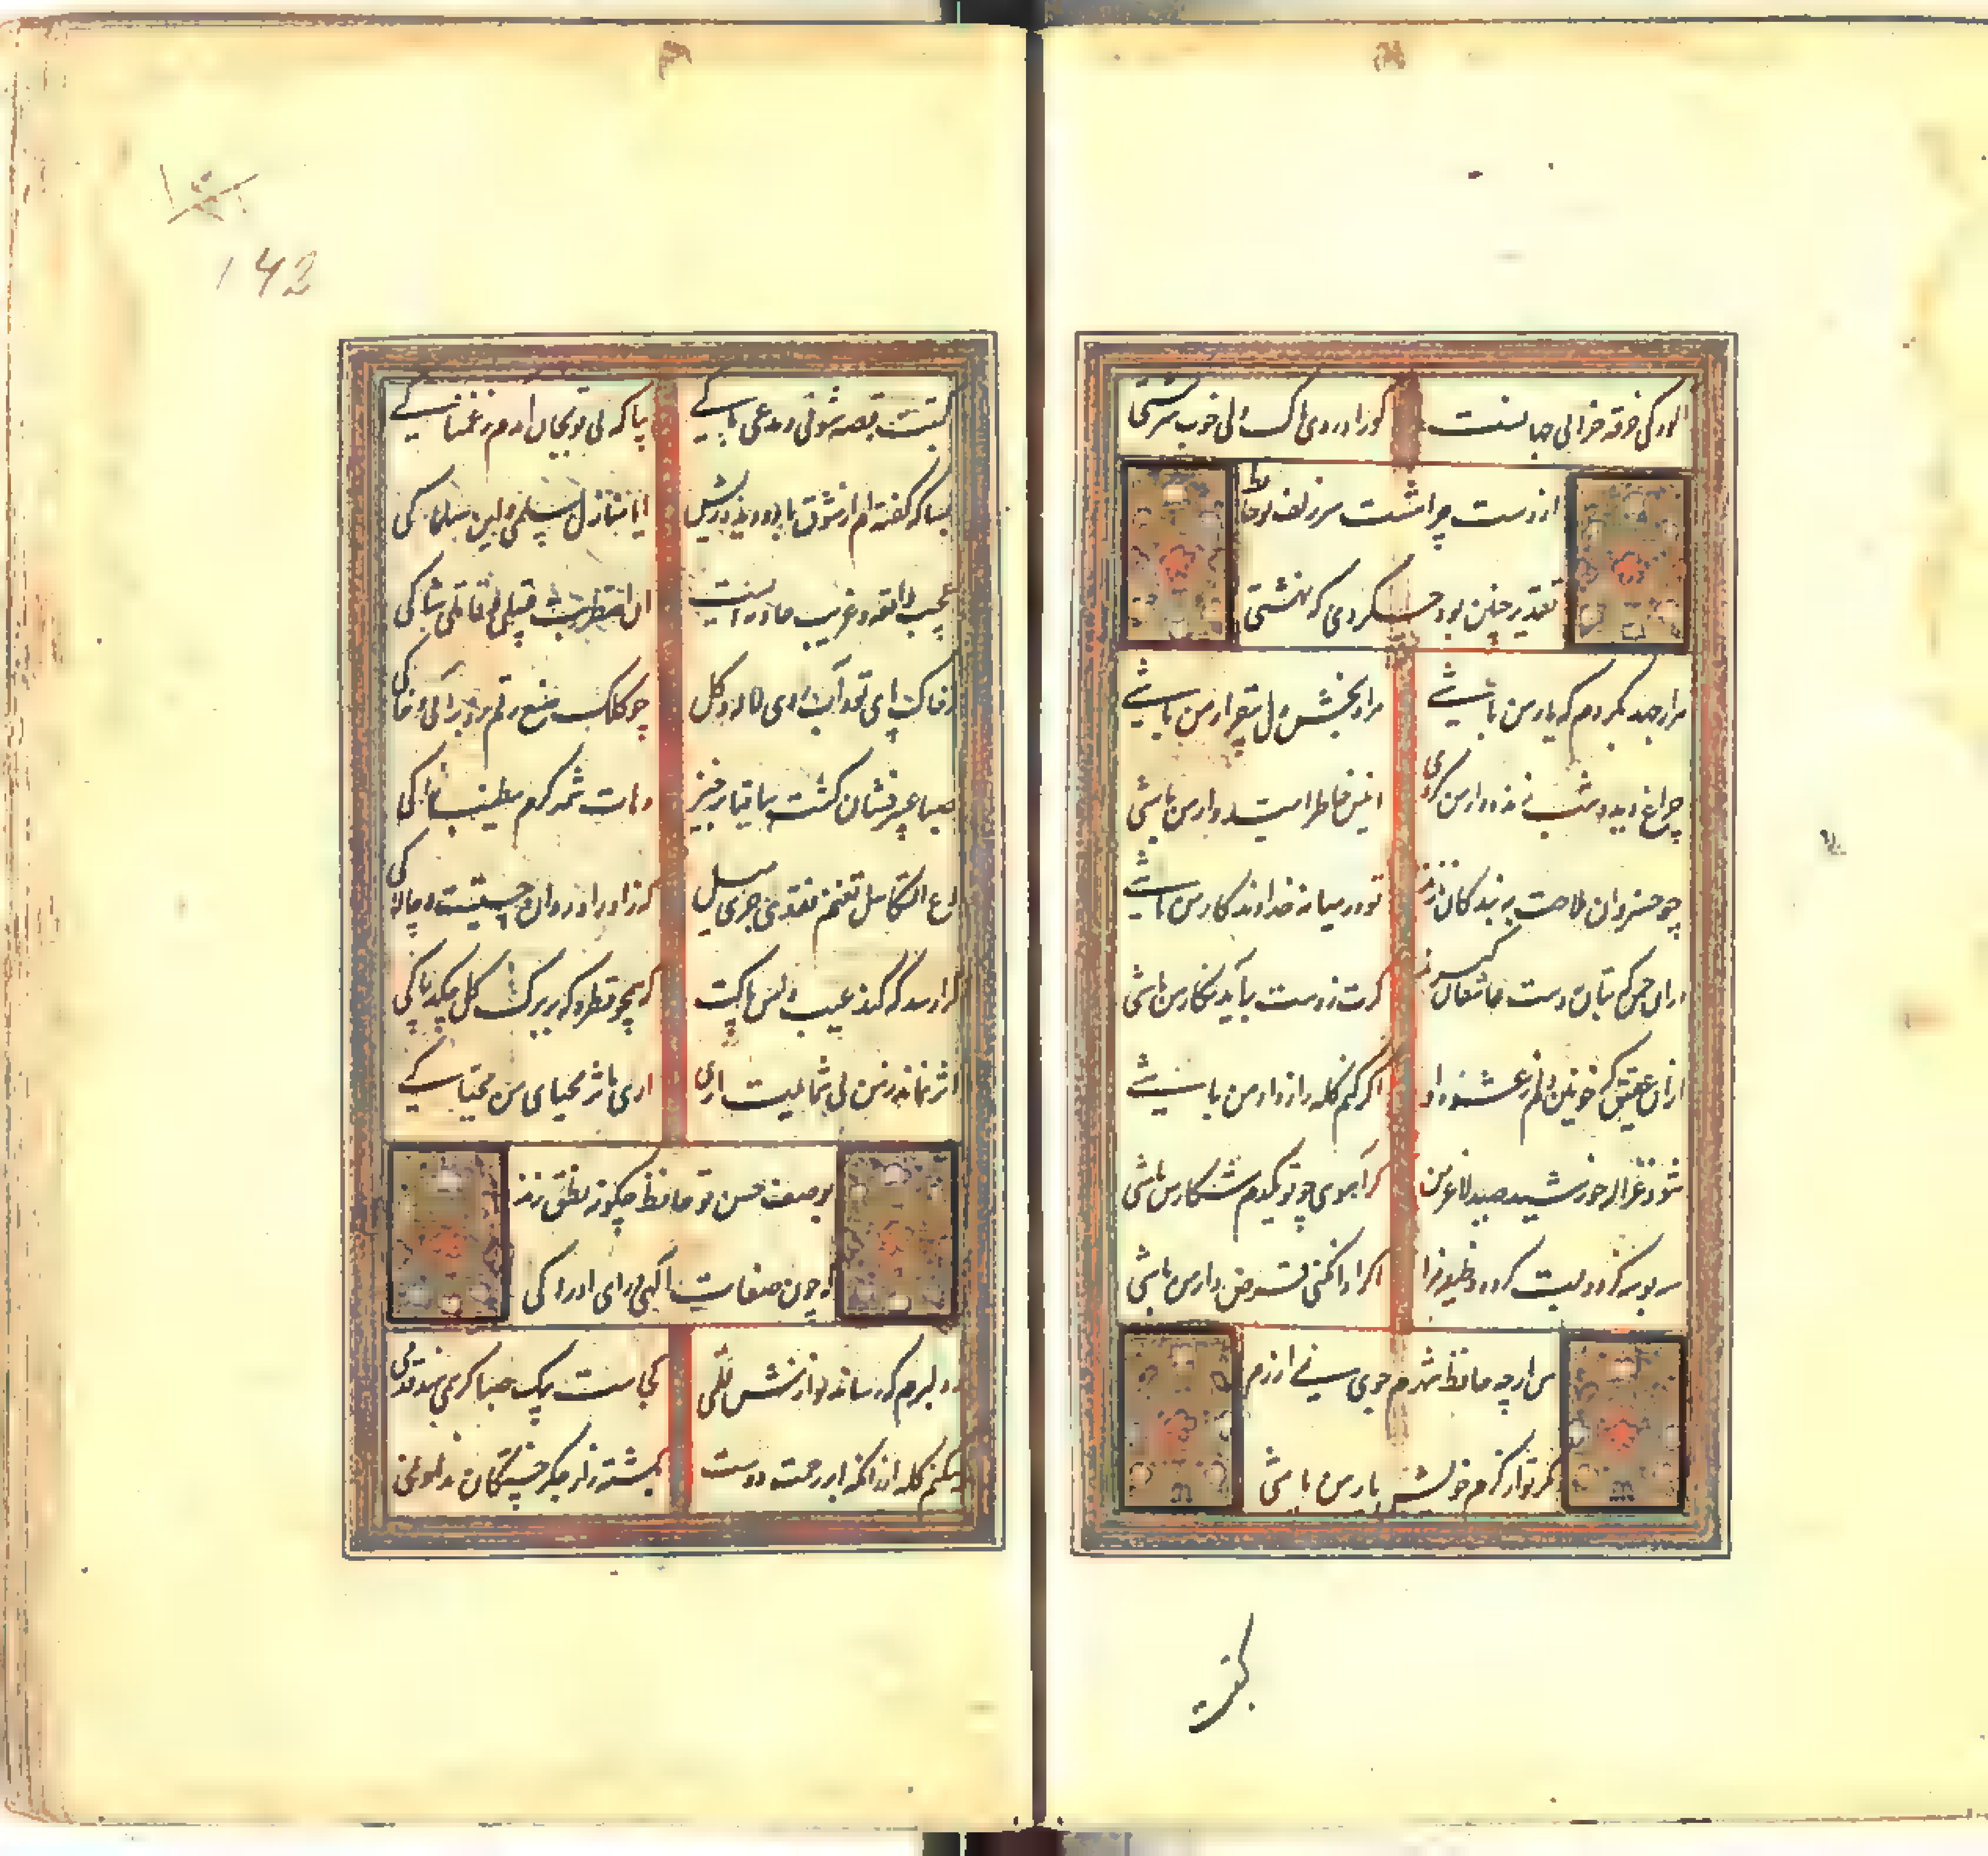 الودکی خرقه خرابی جهانست کو راهروی پاک دلی خوب سرشتی
از دست چرا هشت سر زلف تو حافظ
تقدیر چنین بود چه کردی که نهشتی
هزار جهد بکردم که یار من باشی مراد بخش دل بیقرار من باشی
چراغ دیده شب زنده دار من کردی انیس خاطر امیدوار من باشی
چو خسروان ملاحت به بندکان نازند تو در میانه خداوندکار من باشی
دران چمن که بتان دست عاشقان کیرند کرت ز دست برآید نکار من باشی
ازان عقیق که خونین دلم ز عشوه او اکر کنم کله رازدار من باشی
شود غزاله خورشید صید لاغر من کر آهوی چو تو یکدم شکار من باشی
سه بوسه کز دو لبت کرده وظیفه مرا اکر ادا نکنی قرض دار من باشی
من ارچه حافظ شهرم جوی نمی ارزم
مکر تو از کرم خویش یار من باشی
کتبت
142
کتبت قصه شوقی و مدمعی باکی بیا که بی تو بجان امدم ز غمناکی
بسا که کفته ام از شوق با دو دیده خویش ایا منازل سلمی و این سلماکی
عجیب واقعه و غریب حادثه ایست انا اصطبرت قتیلا و قاتلی شاکی
ز خاک پای تو داد آب روی لاله و کل چو کلک صنع رقم زد بر آبی و خاکی
صبا عبیر فشان کشت ساقیا برخیز وهات شمس کرم مطیب زاکی
دع التکاسل تغنم فقد جری مثل که زاد راهروان چستیست و چالاکی
کرا رسد که کند عیب دامن پاکت که همچو قطره که بر برک کل چکد پاکی
اثر نماند ز من بی شمایلت اری اری ماثر محیای من محیاکی
بوصف حسن تو حافظ چکونه نطق زند
که چون صفات الهی ورای ادراکی
ز دلبرم که رساند نوازش قلمی کجاست پیک صبا کر همی کند کرمی
نمیکنم کله اما که ابر رحمت دوست بکشته زار جکر خستکان نداد نمی